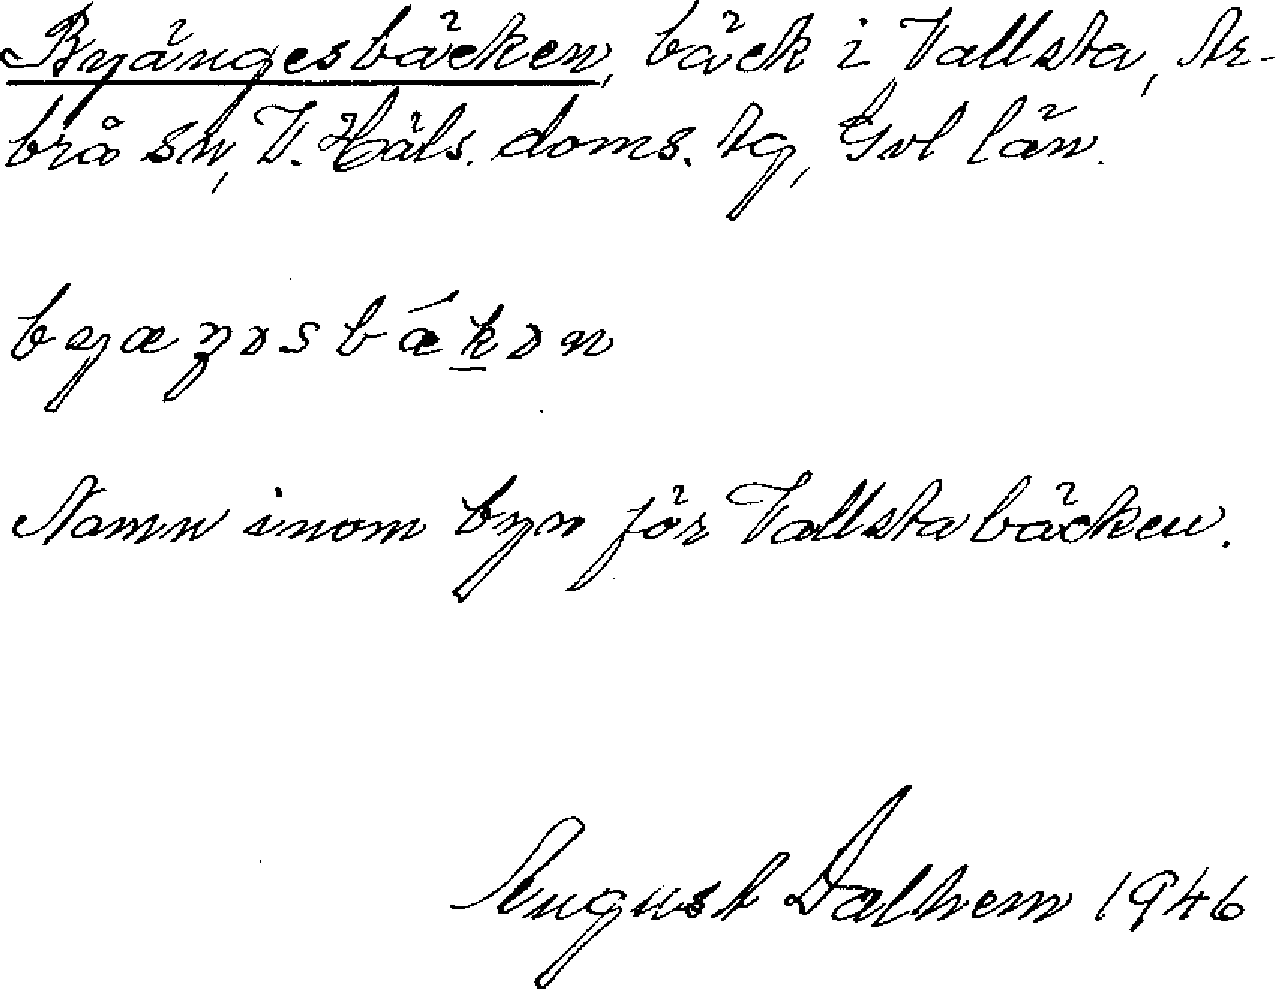 Byängesbäcken, bäck i Vallsta, Ar-
brå sn, V. Häls. doms. tg, Gvl län.
byæŋəsbǽkən
Namn inom byn för Vallstabäcken.
August Dalhem 1946